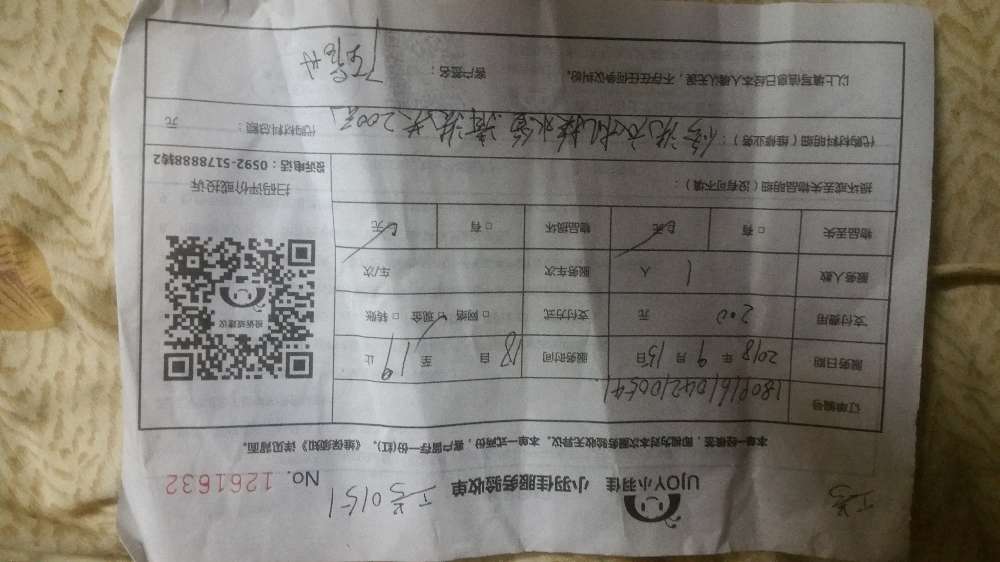 工号
UJOY小羽佳 小羽佳服务验收单
工号0151
No. 1261632
本单一经横签，即视为对本次服务验收无异议。本单一式两份，客户留存一份(红)，《维保须知》详见背面。
订单编号
服务日期 2018年9月15日 服务时间 18自 至19止
支付费用 200 元 支付方式 □网络 现金 □转账
服务人数 1 人 服务车次 车/次
物品丢失 □有 无 物品损坏 □有 无
损坏或丢失物品明细（没有可不填）：
投诉或建议
扫码评价或投诉
投诉电话：0592-5178888转2
代购材料明细（维修业务）： 修洗衣机 水 200元
代购材料总额： 元
以上填写信息已经本人确认无误，不存在任何争议纠纷。 客户签名：